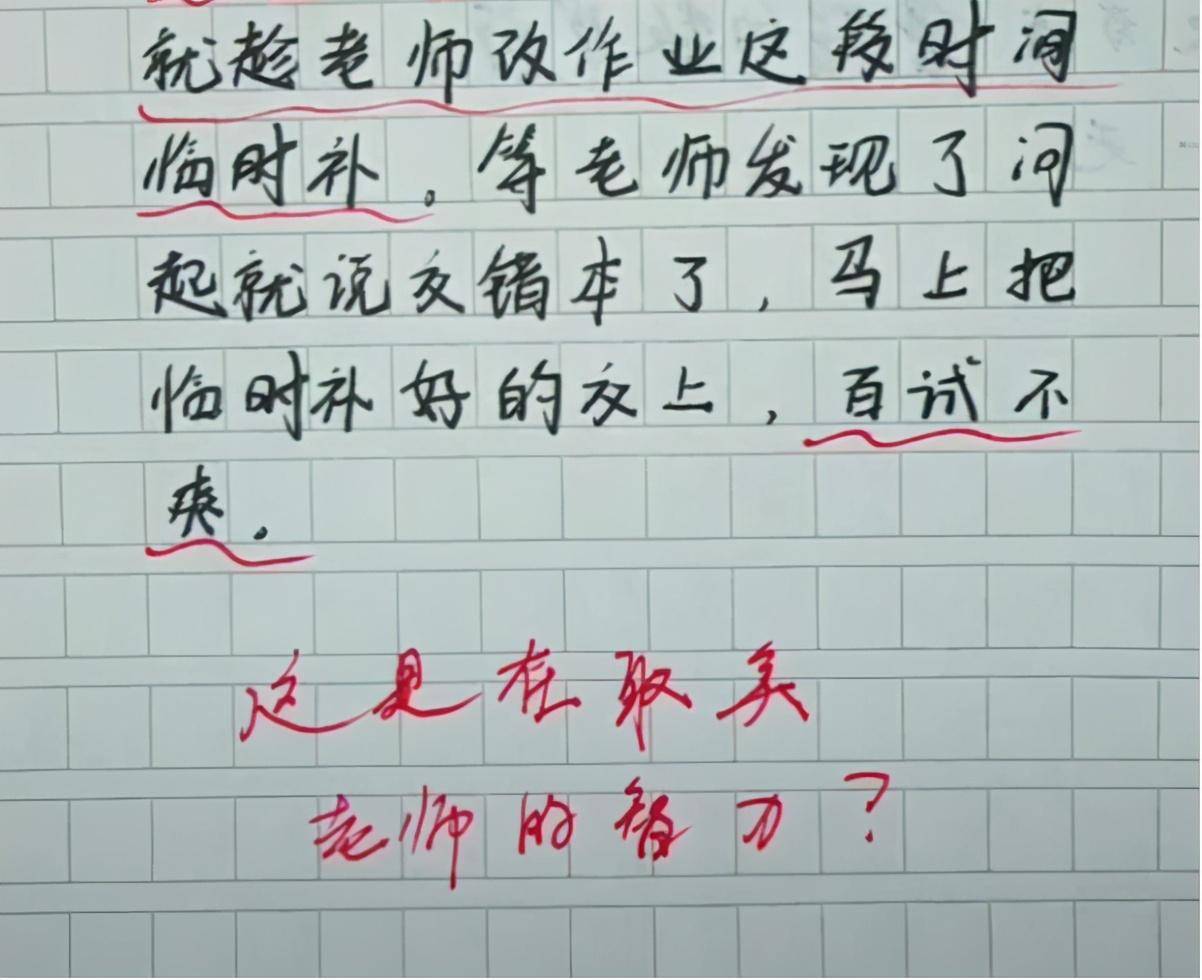 就趁老师改作业这段时间
临时补。等老师发现了问
起就说交错本了，马上把
临时补好的交上，百试不
爽。
这是在取笑
老师的智力？